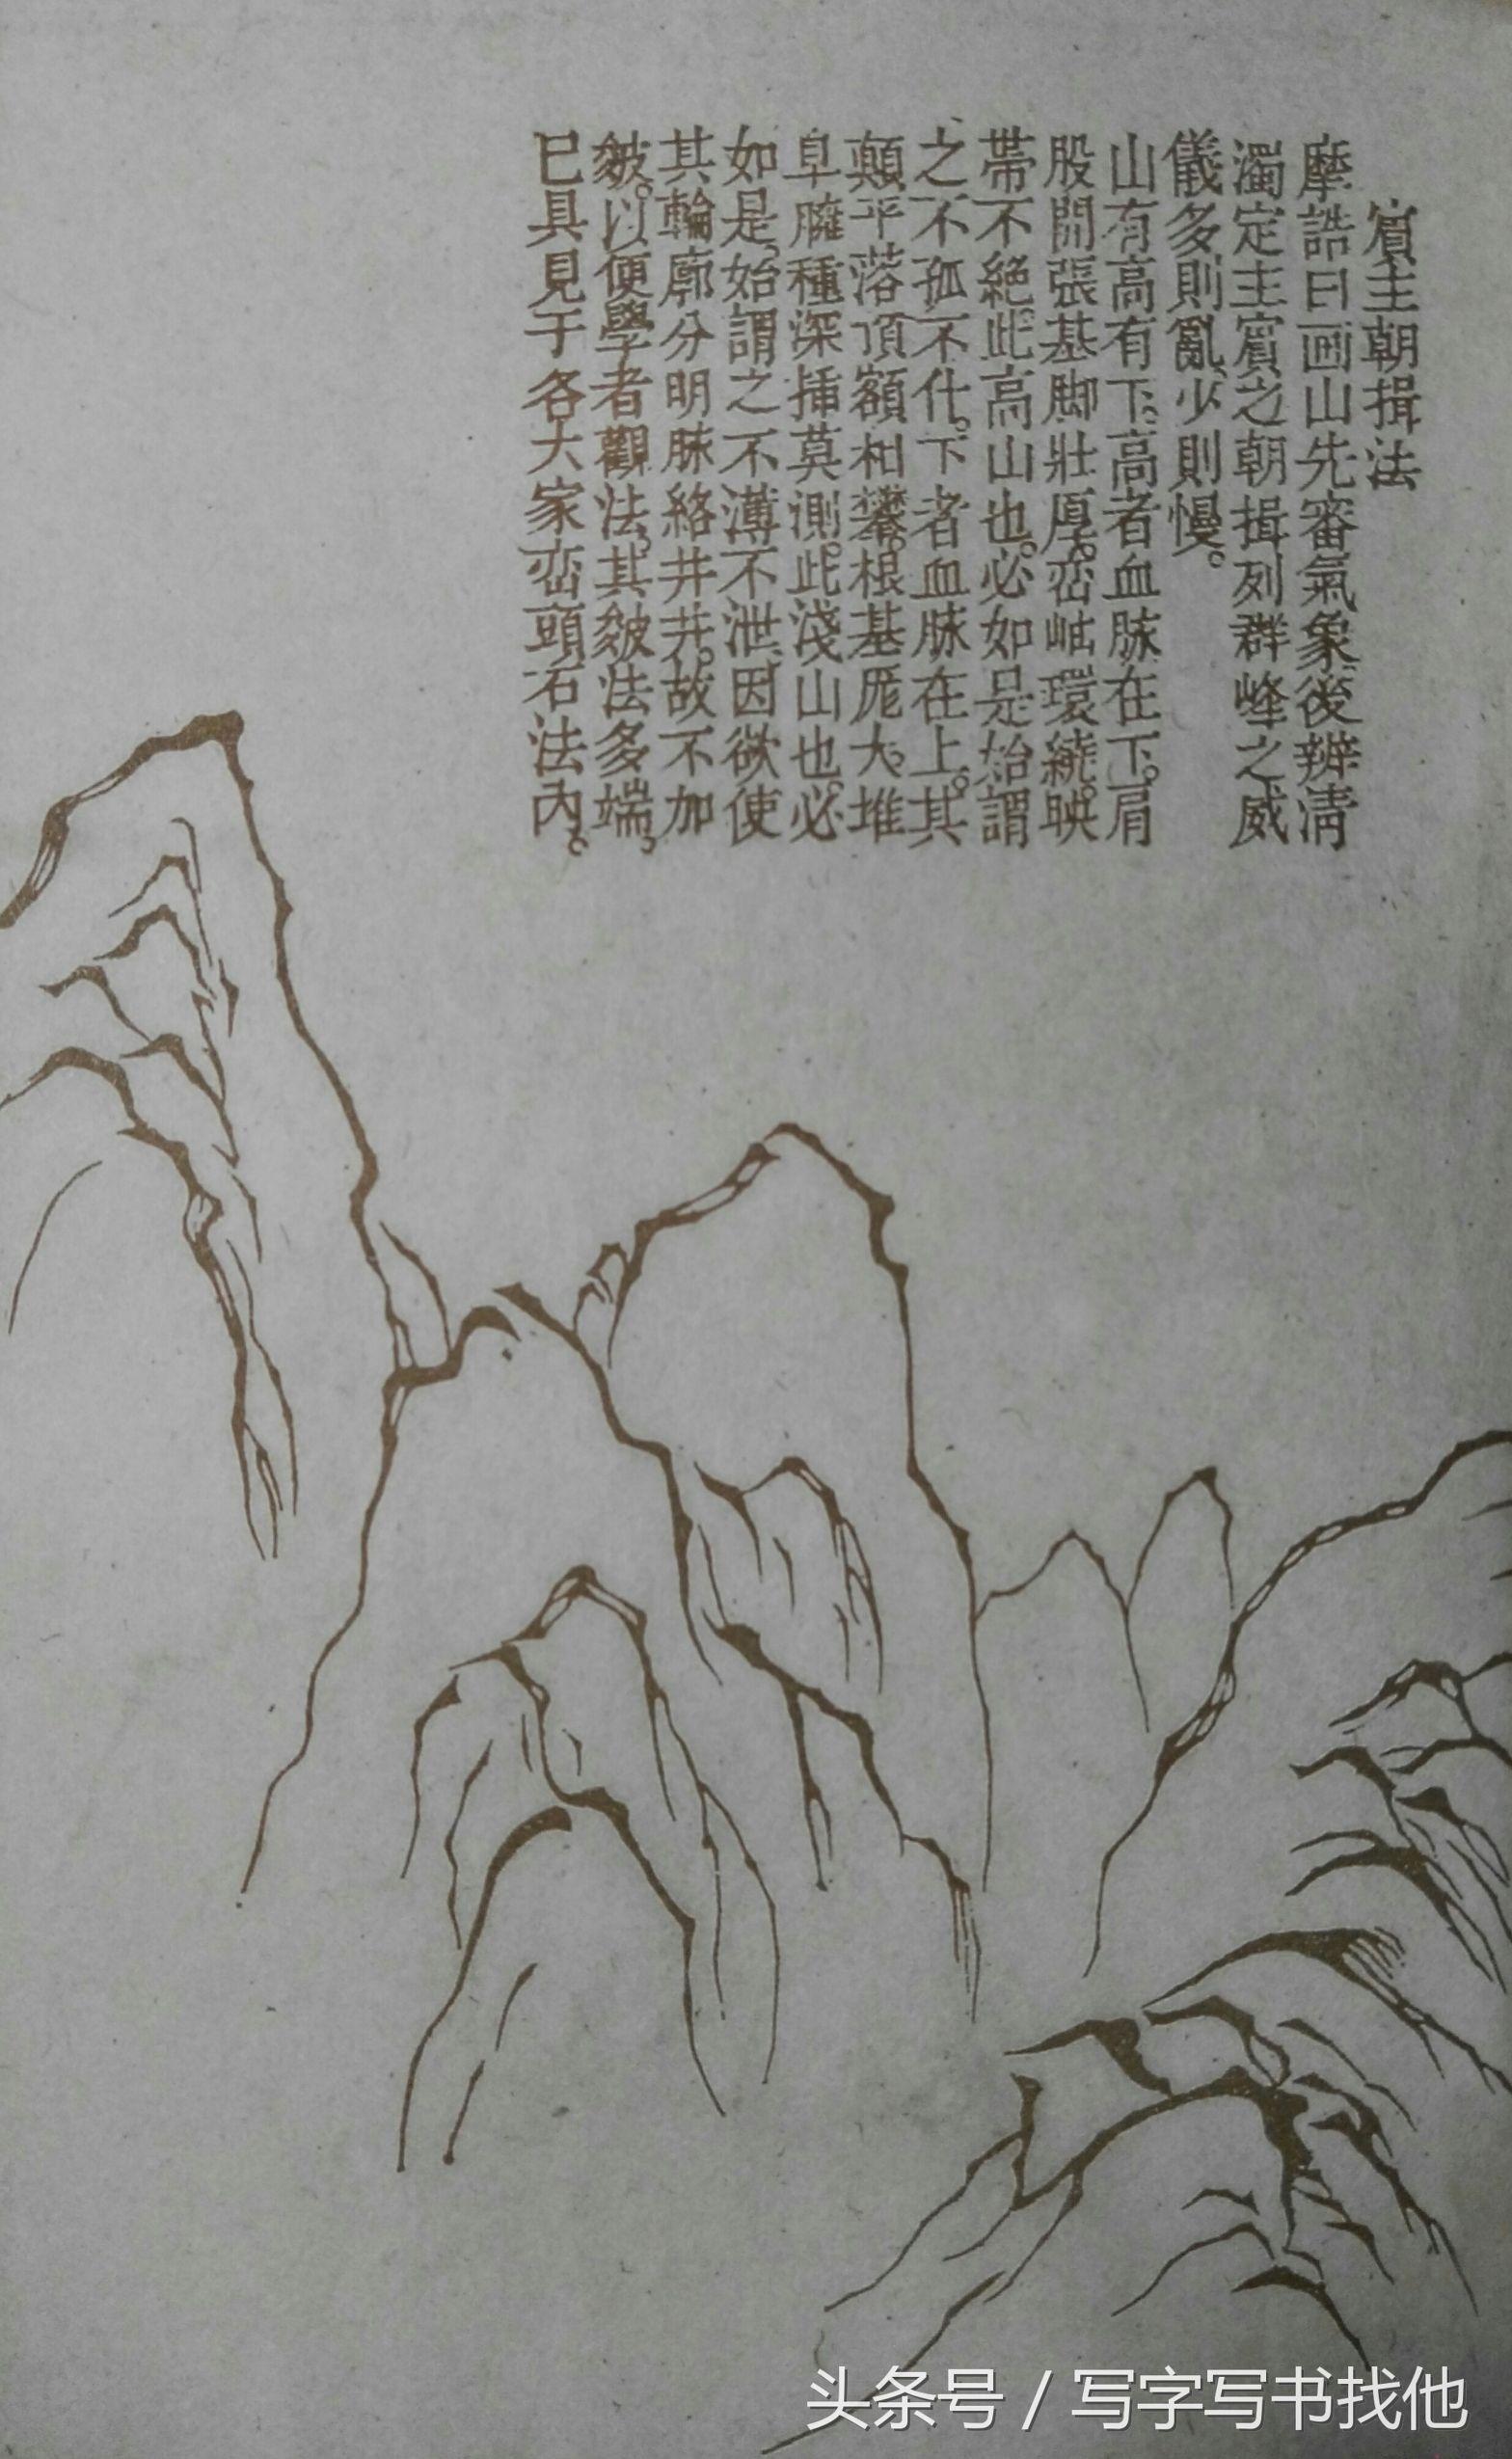 賓主朝揖法
摩詰曰画山先審氣象後辨清
濁定主賓之朝揖列群峰之威
儀多則亂、少則慢。
山有高有下。高者血脉在下。肩
股開張基脚壯厚。峦岫環繞。映
帶不絕。此高山也。必如是始謂
之不孤不什。下者血脉在上。其
顛平落頂額相攀。根基厖大。堆
阜臃種深揷莫測。此淺山也。必
如是、始謂之不薄不泄、因欲使
其輪廓分明脉絡井井。故不加
皴。以便學者觀法。其皴法多端。
已具見于各大家峦頭石法內。
头条号 / 写字写书找他